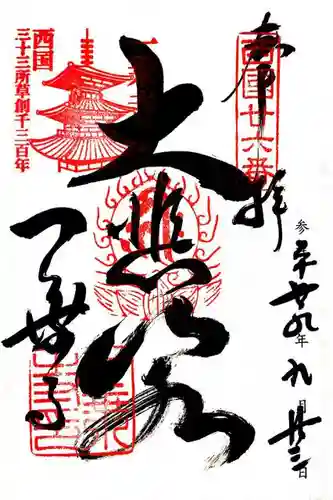 奉拝
西国廿六番
参平廿九年九月廿三日
大悲閣
西国
三十三所草創千三百年
一乗寺